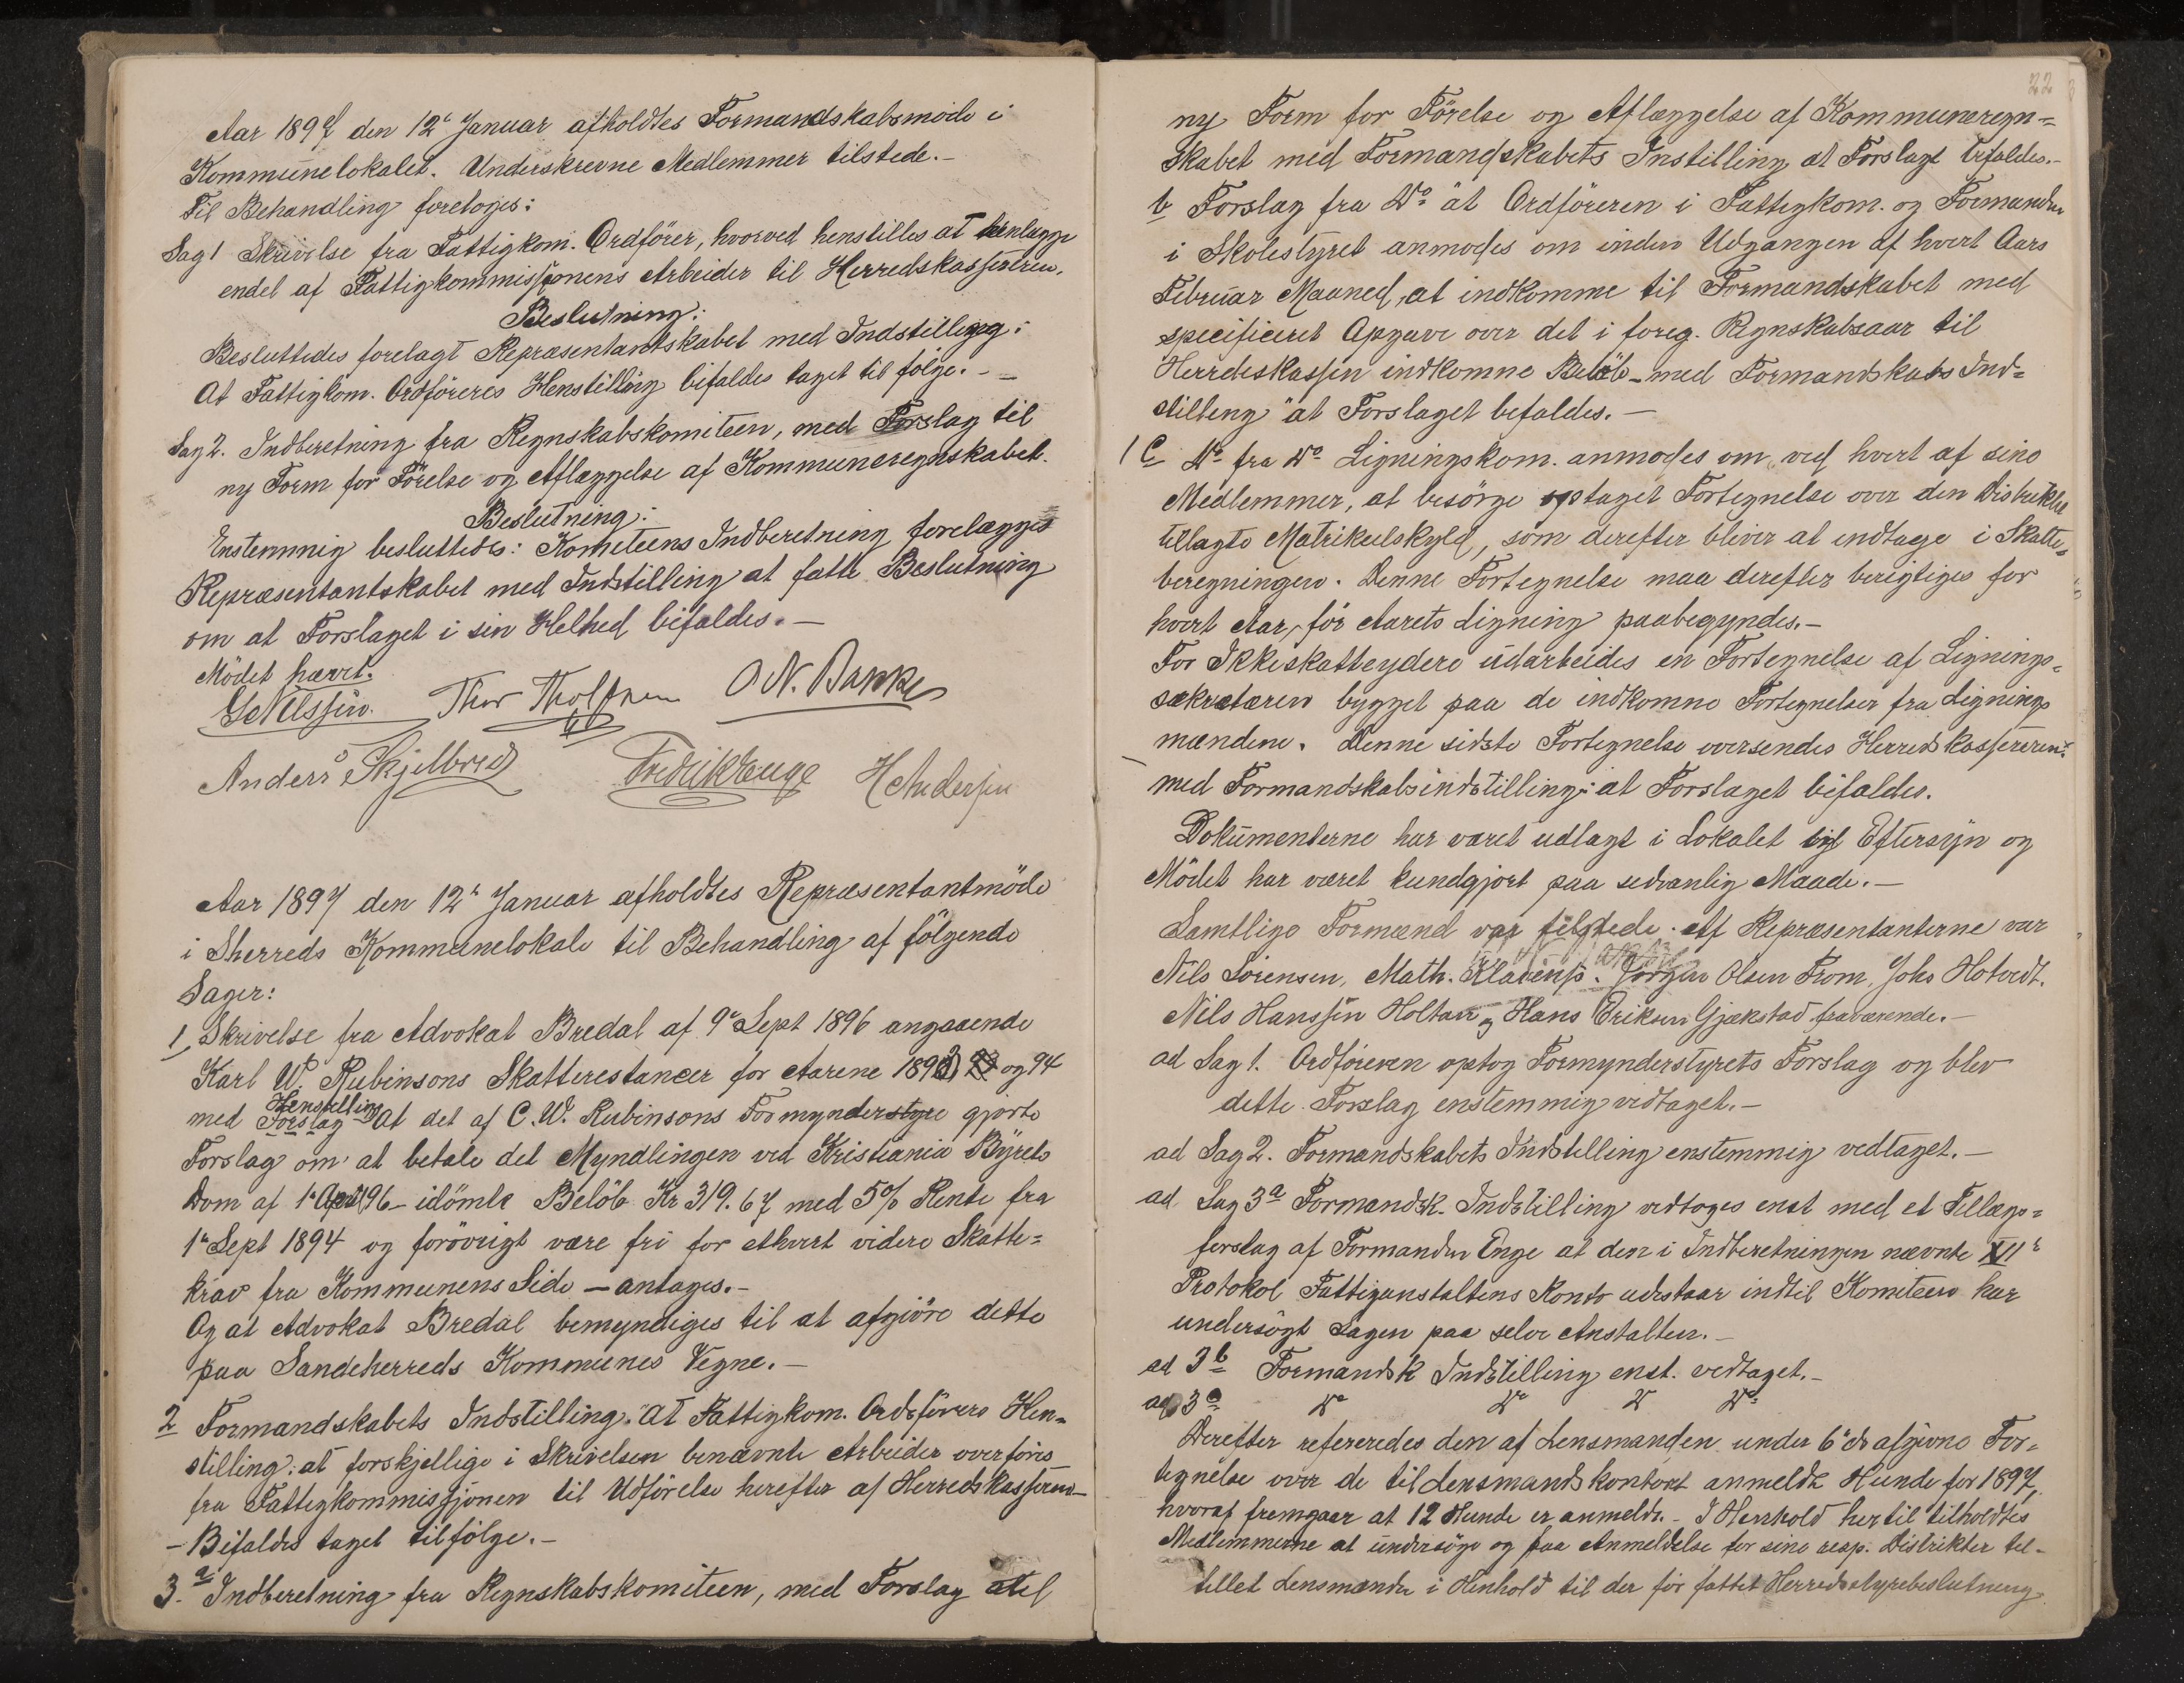 Aar 1897 den 12te Januar afholdtes Formandskabsmöde i
Kommunelokalet. Underskrevne Medlemmer tilstede.–
Til Behandling foretoges:
Sag 1 Skrivelse fra Fattigkom. Ordförer, hvorved henstilles at henlægge
endel af Fattigkommissjonens Arbeider til Herredskassereren.
Beslutning:
Besluttedes forelagt Repræsentantskabet med Indstilling:
At Fattigkom. Ordföreres Henstilling bifaldes taget til følge.–
Sag 2. Indberetning fra Regnskabskomiteen, med Forslag til
ny Form for Förelse og Aflæggelse af Kommuneregnskabet.
Beslutning:
Enstemmig besluttedes: Komiteens Indberetning forelægges
Repræsentantskabet med Indstilling at fatte Beslutning
om at Forslaget i sin Helhed bifaldes.–
Mödet hævet.
Nilssen. Thor O.N. Banke
Anders Skjelbred Fredrik Enge H Andersen
Aar 1897 den 12te Januar afholdtes Repræsentantmöde
i Sherreds Kommunelokale til Behandling af fölgende
Sager:
1, Skrivelse fra Advokat Bredal af 9de Sept 1896 angaaende
Karl W. Rubinsons Skatterestancer for Aarene 1893 og 94
med Forslag Henstilling At det af C. W. Rubinsons Formynderstyre gjorte
Forslag om at betale det Myndlingen ved Kristiania Byrets
Dom af 1ste April 96– idömte Belöb Kr 319.67 med 5% Rente fra
1ste Sept 1894 og forövrigt være fri for ethvert videre Skatte=
krav fra Kommunens Side – antages.–
Og at Advokat Bredal bemyndiges til at afgjöre dette
paa Sandeherreds Kommunes Vegne.–
2 Formandskabets Indstilling: "At Fattigkom. Ordförers Hen=
stilling: at forskjellige i Skrivelsen benævnte Arbeider overföres
fra Fattigkommissjonen til Udförelse herefter af Herredskasseren–
– Bifaldes taget tilfölge.–
3.a Indberetning fra Regnskabskomiteen, med Forslag til
22
ny Form for Förelse og Aflæggelse af Kommuneregn=
skabet med Formandskabets Instilling at Forslaget bifaldes.–
b Forslag fra Do at Ordföreren i Fattigkom. og Formanden
i Skolestyret anmodes om inden Udgangen af hvert Aars
Februar Maaned, at indkomme til Formandskabet med
specificeret Opgave over det i foreg. Regnskabsaar til
Herredskassen indkomne Belöb – med Formandskabs Ind=
stilling "at Forslaget bifaldes.–
1 c Do fra Do Ligningskom. anmodes om, ved hvert af sine
Medlemmer, at besörge optaget Fortegnelse over den Distriktet
tillagte Matrikulskyld, som derefter bliver at indtage i Skatte=
beregningen. Denne Fortegnelse maa derefter berigtiges for
hvert Aar, för Aarets Ligning paabegyndes.–
For Ikkeskatteydere udarbeides en Fortegnelse af Lignings=
sekretæren bygget paa de indkomne Fortegnelser fra Lignings
mændene. Denne sidste Fortegnelse oversendes Herredskassereren
med Formandskabsindstilling: at Forslaget bifaldes.
Dokumenterne har været udlagt i Lokalet til Eftersyn og
Mödet har været kundgjort paa sedvanlig Maade.–
Samtlige Formænd var tilstede. Af Repræsentanterne var
Nils Sörensen, Math. Klavenss. Jörgen Olsen From, Johs Hotvedt.
Nils Hanssen Holtan og Hans Eriksen Gjækstad fraværende.–
ad Sag 1. Ordföreren optog Formynderstyrets Forslag og blev
dette Forslag enstemmig vedtaget.–
ad Sag 2. Formandskabets Indstilling enstemmig vedtaget.–
ad Sag 3a Formandsk. Indstilling vedtoges enst med et Tillægs=
forslag af Formanden Enge at den i Indberetningen nævnte XIIte
Protokol Fattiganstaltens Konto udstaar indtil Komiteen har
undersögt Sagen paa selve Anstalten.–
ad 3b Formandsk Indstilling enst. vedtaget.–
ad 3c Do Do Do Do
Derefter refereredes den af Lensmanden under 6te ds afgivne For=
tegnelse over de til Lensmandskontoret anmeldte Hunde for 1897,
hvoraf fremgaar at 12 Hunde er anmeldt.– I Henhold hertil tilholdtes
Medlemmerne at undersöge og paa Anmeldelse for sine resp. Distrikter til=
stillet Lensmanden i Henhold til der för fattet Herredsstyrebeslutning